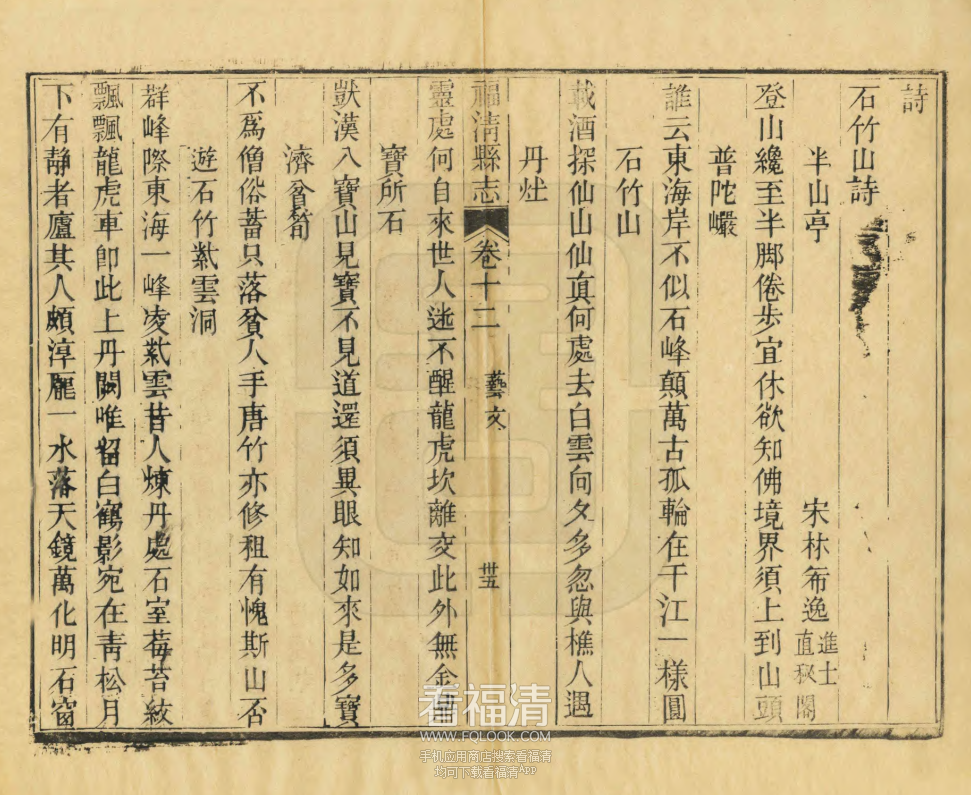 詩
石竹山詩
半山亭 宋林希逸 進士直秘閣
登山纔至半脚倦步宜休欲知佛境界須上到山頭
普陀巖
誰云東海岸不似石峰顛萬古孤輪在千江一樣圓
石竹山
載酒探仙山仙真何處去白雲向夕多忽與樵人遇
丹灶
福清縣志 卷十二 藝文 卅五
靈處何自來世人迷不醒龍虎坎離交此外無金鼎
寶所石
獃漢入寶山見寶不見道還須異眼知如來是多寶
濟貧筍
不爲僧俗蓄只落貧人手唐竹亦修租有愧斯山否
遊石竹紫雲洞
群峰際東海一峰凌紫雲昔人煉丹處石室莓苔紋
飄飄龍虎車卽此上丹闕唯留白鶴影宛在靑松月
下有靜者廬其人頗淳龐一水落天鏡萬化明石窗
看福清
WWW.FQLOOK.COM
手机应用商店搜索看福清
均可下载看福清App